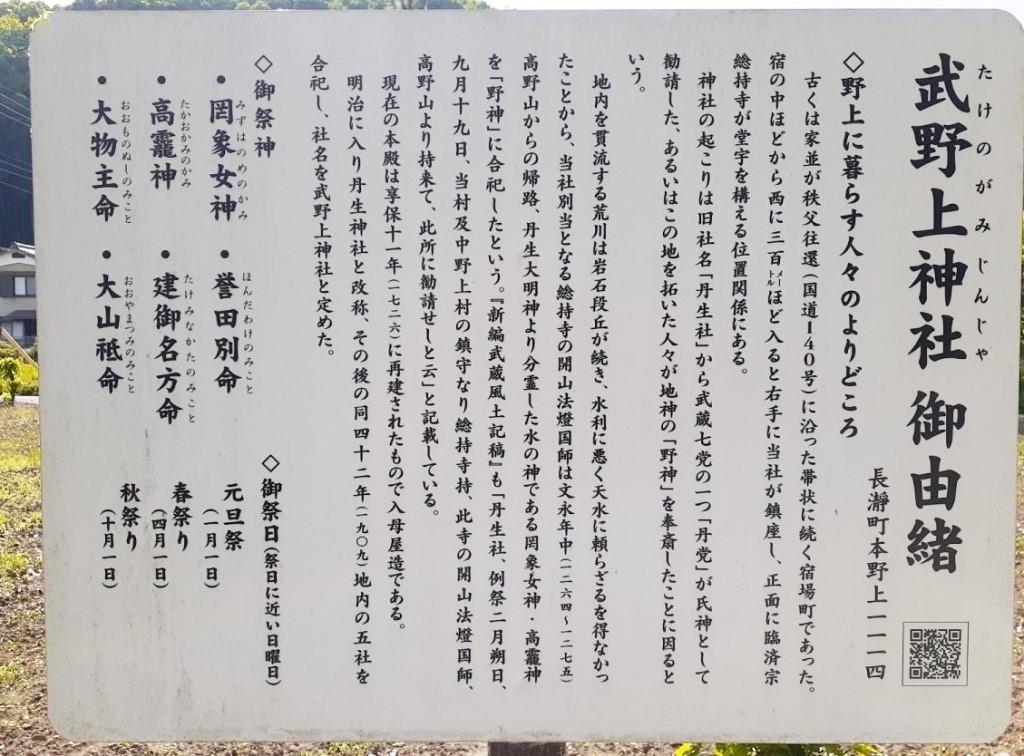 武野上神社 御由緒
たけのがみじんじゃ
長瀞町本野上一一一四
◇野上に暮らす人々のよりどころ
古くは家並が秩父往還(国道140号)に沿った帯状に続く宿場町であった。
宿の中ほどから西に三百メートルほど入ると右手に当社が鎮座し、正面に臨済宗
総持寺が堂宇を構える位置関係にある。
神社の起こりは旧社名「丹生社」から武蔵七党の一つ「丹党」が氏神として
勧請した、あるいはこの地を拓いた人々が地神の「野神」を奉斎したことに因ると
いう。
地内を貫流する荒川は岩石段丘が続き、水利に悪く天水に頼らざるを得なかっ
たことから、当社別当となる総持寺の開山法燈国師は文永年中(一二六四~一二七五)
高野山からの帰路、丹生大明神より分霊した水の神である罔象女神・高龗神
を「野神」に合祀したという。『新編武蔵風土記稿』も「丹生社、例祭二月朔日、
九月十九日、当村及中野上村の鎮守なり総持寺持、此寺の開山法燈国師、
高野山より持来て、此所に勧請せしと云」と記載している。
現在の本殿は享保十一年(一七二六)に再建されたもので入母屋造である。
明治に入り丹生神社と改称、その後の同四十二年(一九〇九)地内の五社を
合祀し、社名を武野上神社と定めた。
◇御祭神
• 罔象女神
みずはのめのかみ
• 誉田別命
ほんだわけのみこと
• 高龗神
たかおかみのかみ
• 建御名方命
たけみなかたのみこと
• 大物主命
おおものぬしのみこと
• 大山祗命
おおやまつみのみこと
◇御祭日(祭日に近い日曜日)
元旦祭
(一月一日)
春祭り
(四月一日)
秋祭り
(十月一日)